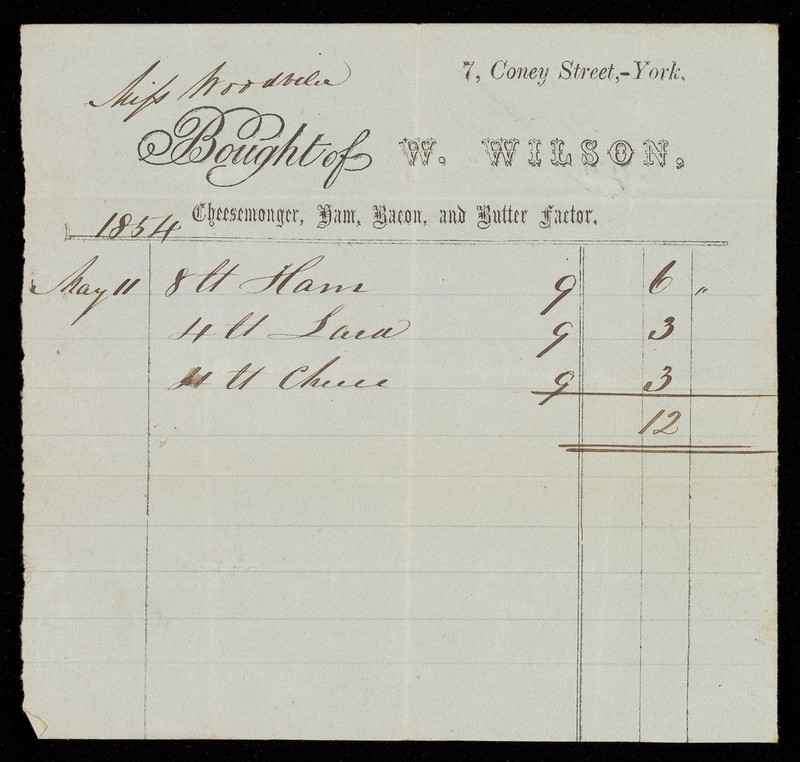 7, Coney Street,-York.
Miss
Bought of W. WILSON,
Cheesemonger, Ham, Bacon, and Butter Factor.
1854
May 11 8 lb Ham 9 6 "
4 lb Lard 9 3
4 lb Cheese 9 3
12